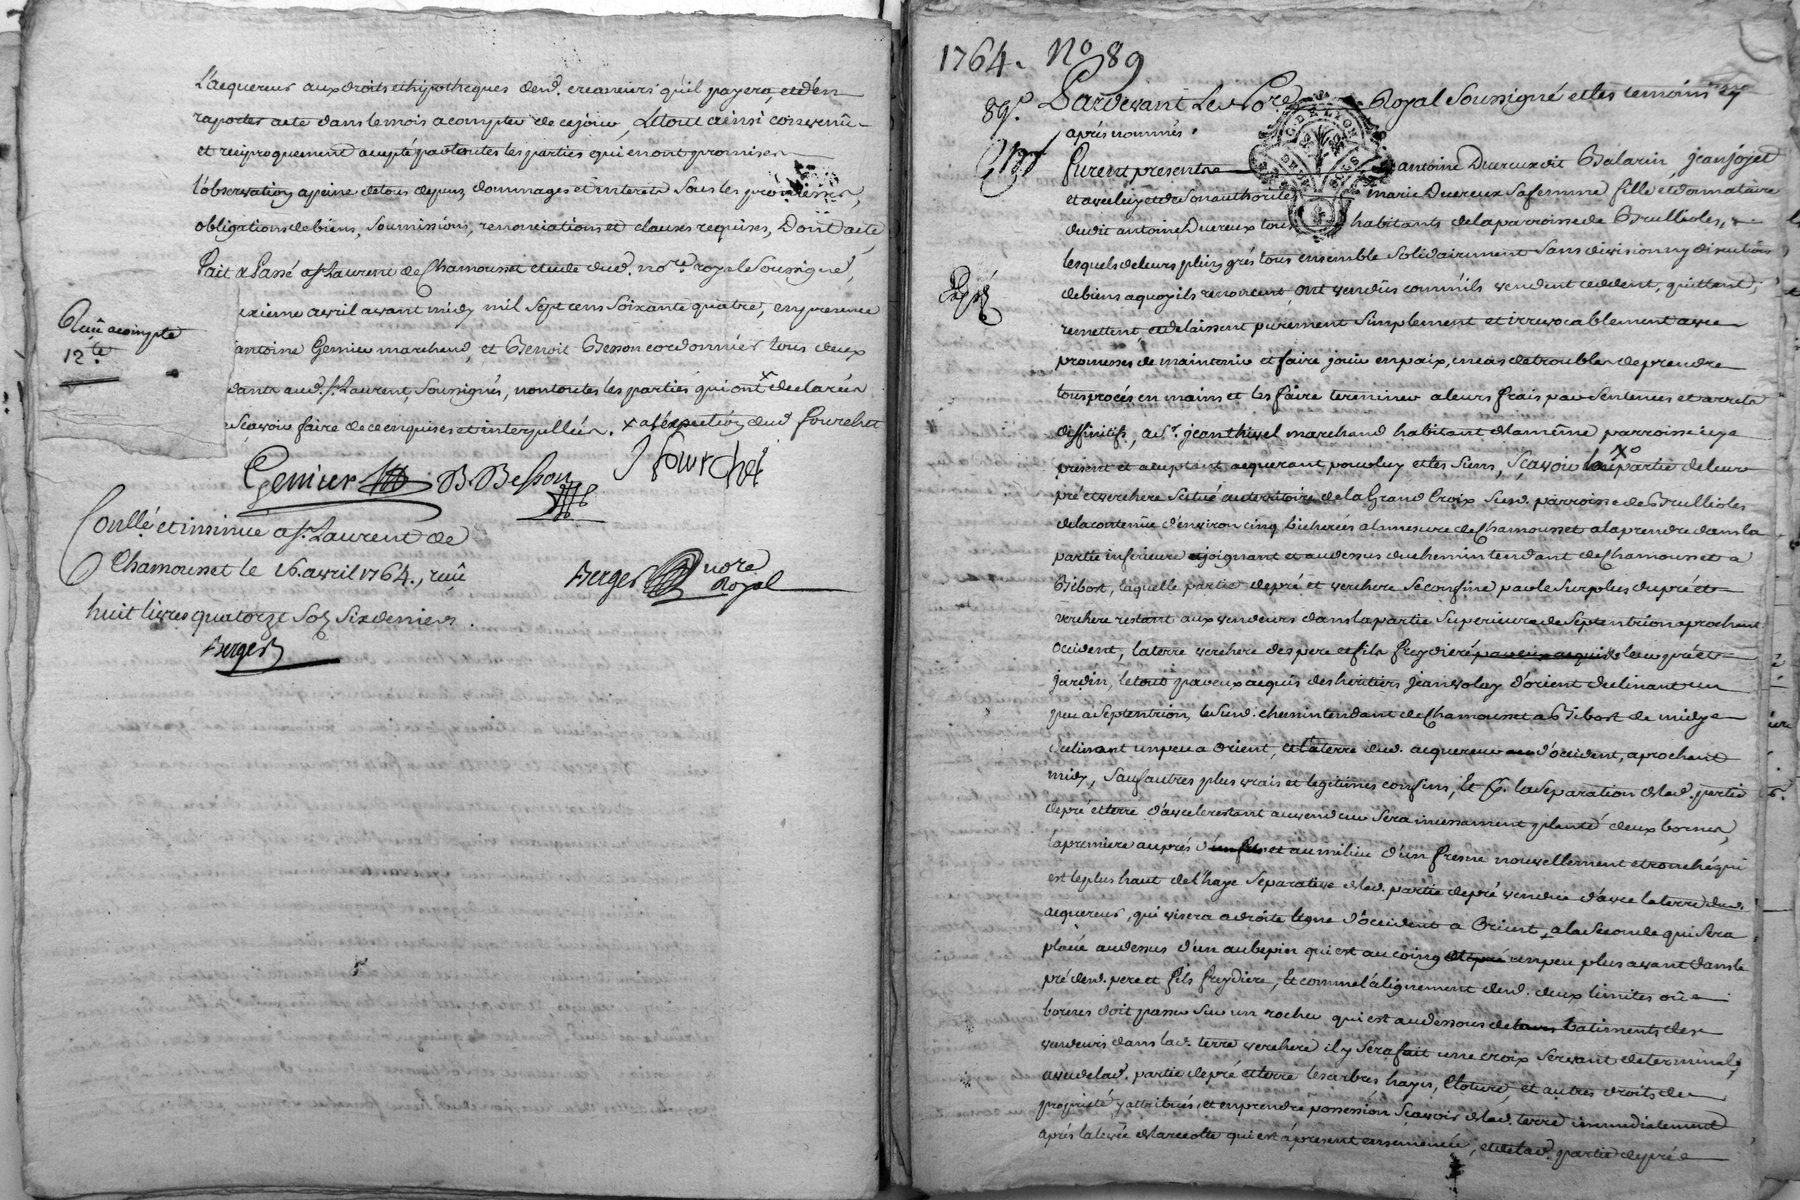 L'acquereur aux droits et hipotheques desd. creanciers qu'il payera, et d'en
raporter acte dans le mois a compter de ce jour, Le tout ainsi convenû
et reciproquement accepté par toutes les parties qui en ont promis
l'observation a peine de tous depens, dommages et interets sous les promesses,
obligations de biens, soumissions, renonciations et clauses requises, Dont acte,
Fait et Passé a St. Laurent de Chamousset etude dud. nore. royal soussigné,
ixieme avril avant midy mil sept cens soixante quatre, en presence
antoine Genier marchand, et Benoit Besson cordonnier tous deux
dants aud. St. Laurent, soussignés, non toutes les parties qui ont x declarés
scavoir faire de ce enquises et interpellées. x a l'exception dud fourchet
Reçu acompte
12.te
Genier B. Besson J fourchet
Conllé et insinué a St. Laurent de
Chamousset le 16. avril 1764., reçû
huit livres quatorze Sols six deniers.
Berger
Berger nore Royal
1764. No 89
89.e Pardevant Le Nore Royal soussigné et les temoins cy
après nommés.
furent presents antoine Ducreux dit Balarin, jean joyet
et avec luy et de son authorité marie Ducreux sa femme fille et donnataire
dudit antoine Ducreux tous habitants de la parroisse de Brullioles,
lesquels de leurs plein grés tous ensemble solidairement sans division ny discution
de biens a quoy ils renoncent, ont vendûs comm'ils vendent cedent, quittent,
Exp.é
remettent et delaissent purement simplement et irrevocablement avec
promesses de maintenir et faire jouir en paix, en cas de trouble de prendre
tous procés en mains et les faire terminer a leurs frais par sentences et arrets
diffinitifs, a Sr. jean thivel marchand habitant de la même parroisse icy
present et acceptant acquerant pour luy et les siens, Scavoir la partie de leur
pré et verchere situé au territoire de la Grand Croix sud. parroisse de Brullioles
de la contenüe d'environ cinq bicherées a la mesure de Chamousset a la prendre dans la
partie inferieure joignant et au dessus du chemin tendant de Chamousset a
Bibost, laquelle partie de pré et verchere se confine par le surplus du pré et
verchere restant aux vendeurs dans la partie superieure de Septentrion aprochant
Occident, la terre verchere des pere et fils freydiere par eux acquis leur pré et
jardin, le tout par eux acquis des heritiers jean volay d'orient declinant un
peu a Septentrion, le sud. chemin tendant de Chamousset a Bibost de midy
declinant un peu a Orient, et la terre dud. acquereur d'occident, aprochant
midy, Sauf autres plus vrais et legitimes confins, Et Pr. la separation de lad. partie
de pré et terre d'avec le restant au vendeur sera incessament planté deux bornes,
la premiere auprés d'un et au milieu d'un fresne nouvellement etronché qui
est le plus haut de l'haye separative de lad. partie de pré vendüe d'avec la terre dud.
acquereur, qui visera a droite ligne d'occident a Orient, a la seconde qui sera
placée au dessus d'un aubepin qui est au coing un peu plus avant dans le
pré desd. pere et fils freydiere, Et comme l'alignement desd. deux limites où
bornes doit passer sur un rocher qui est au dessous de leurs batiments des
vendeurs dans lad. terre verchere il y sera fait une croix servant de terminale,
avec de lad. partie de pré et terre les arbres hayes, Cloture, et autres droits de
proprieté y attribués, et en prendre possession scavoir de lad. terre immediatement
aprés la levée de la recolte qui est a present ensemencée, et de lad. partie de pré